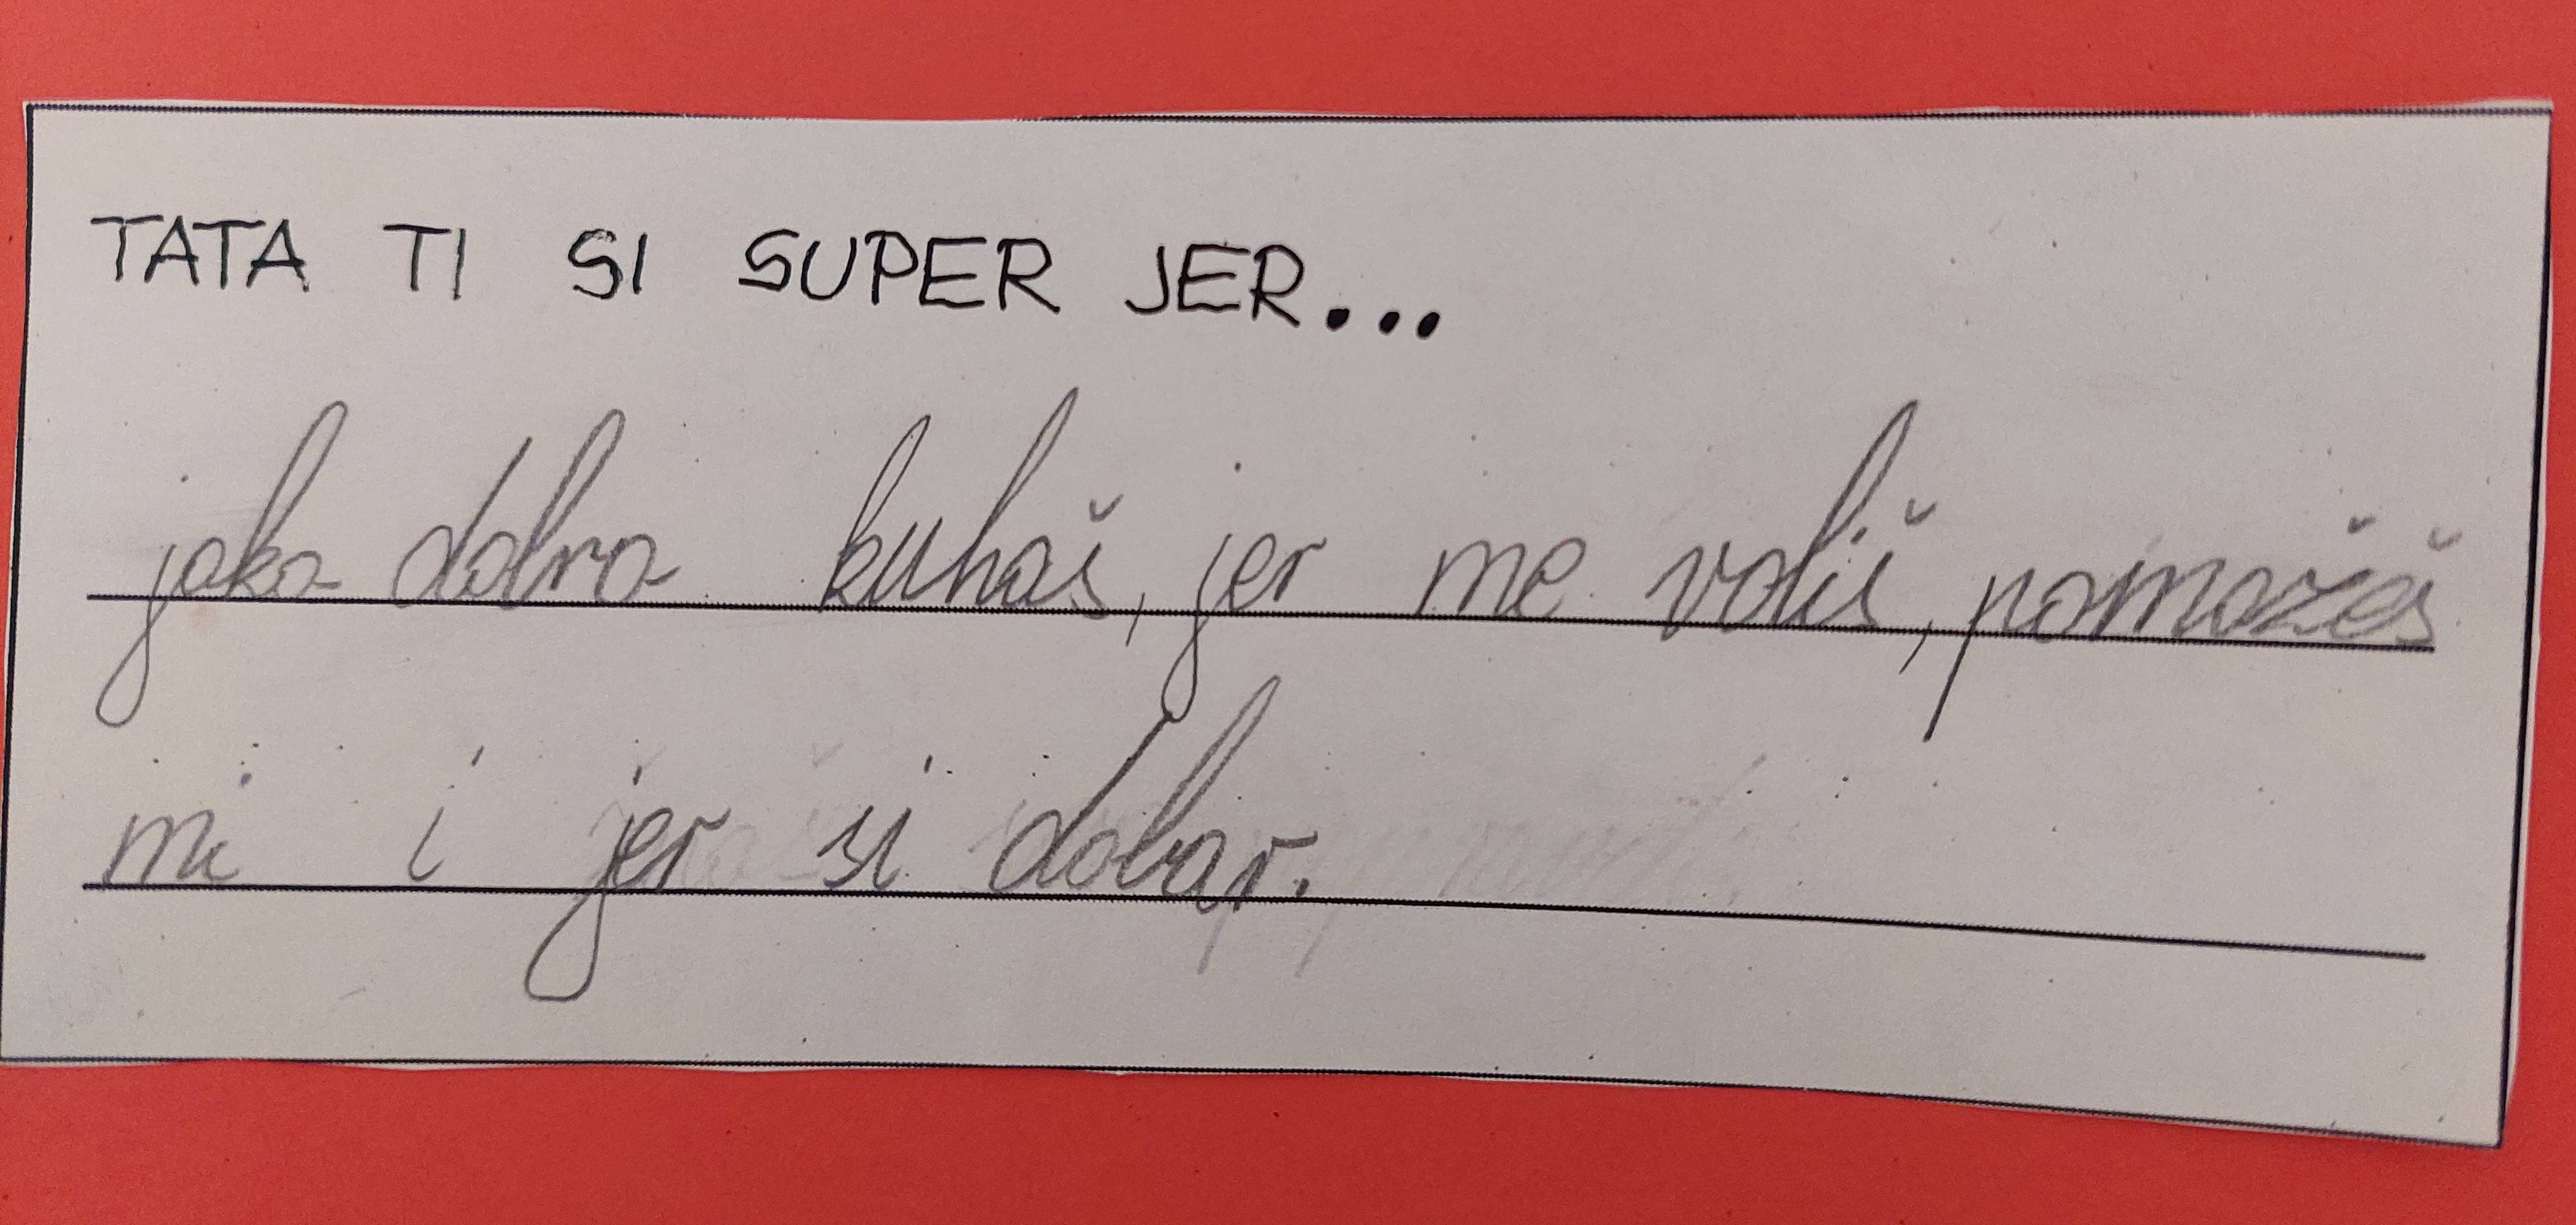 TATA TI SI SUPER JER...
jako dobro kuhaš, jer me voliš, pomožeš
mi i jer si dobar.